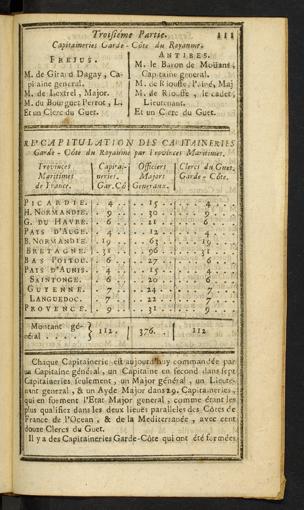 Troisiéme Partie. 111
Capitaineries Garde-Côte du Royaume.
FREJUS.
M. de Girard Dagay, Ca-
pitaine general.
M. de Lextrel, Major.
M. du Bourguet Perrot, L.
Et un Clerc du Guet.
ANTIBES.
M. le Baron de Moüans,
Capitaine general.
M. de Riouffe, l'aîné, Maj
M. de Riouffe, le cadet,
Lieutenant.
Et un Clerc du Guet.
RECAPITULATION DES CAPITAINERIES
Garde-Côte du Royaume par Provinces Maritimes.
Provinces Maritimes de France. Capitai- neries. Gar. Cô Officiers Majors Generaux. Clercs du Guet. Garde-Côte.
PICARDIE. . 4 . . 15 . . 4
H. NORMANDIE. . 9 . . 30 . . 9
G. DU HAVRE. . 6 . . 21 . . 6
PAYS D'AUGE. . 4 . . 12 . . 4
B. NORMANDIE. . 19 . . 63 . . 19
BRETAGNE. . 31 . . 96 . . 31
BAS POITOU. . 6 . . 27 . . 6
PAYS D'AUNIS. . 4 . . 15 . . 4
SAINTONGE. . 6 . . 20 . . 6
GUYENNE. . 7 . . 24 . . 7
LANGUEDOC. . 7 . . 22 . . 7
PROVENCE. . 9 . . 31 . . 9
Montant gé-
néral . . . . } 112. 376. 112
Chaque Capitainerie est aujourd'huy commandée par
un Capitaine général, un Capitaine en second dans sept
Capitaineries seulement, un Major général, un Lieute-
nant general, & un Ayde Major dans 29. Capitaineries,
qui en forment l'Etat Major general, comme étant les
plus qualifiez dans les deux lieuës paralleles des Côtes de
France de l'Ocean, & de la Mediterranée, avec cent
douze Clercs du Guet.
Il y a des Capitaineries Garde-Côte qui ont été formées